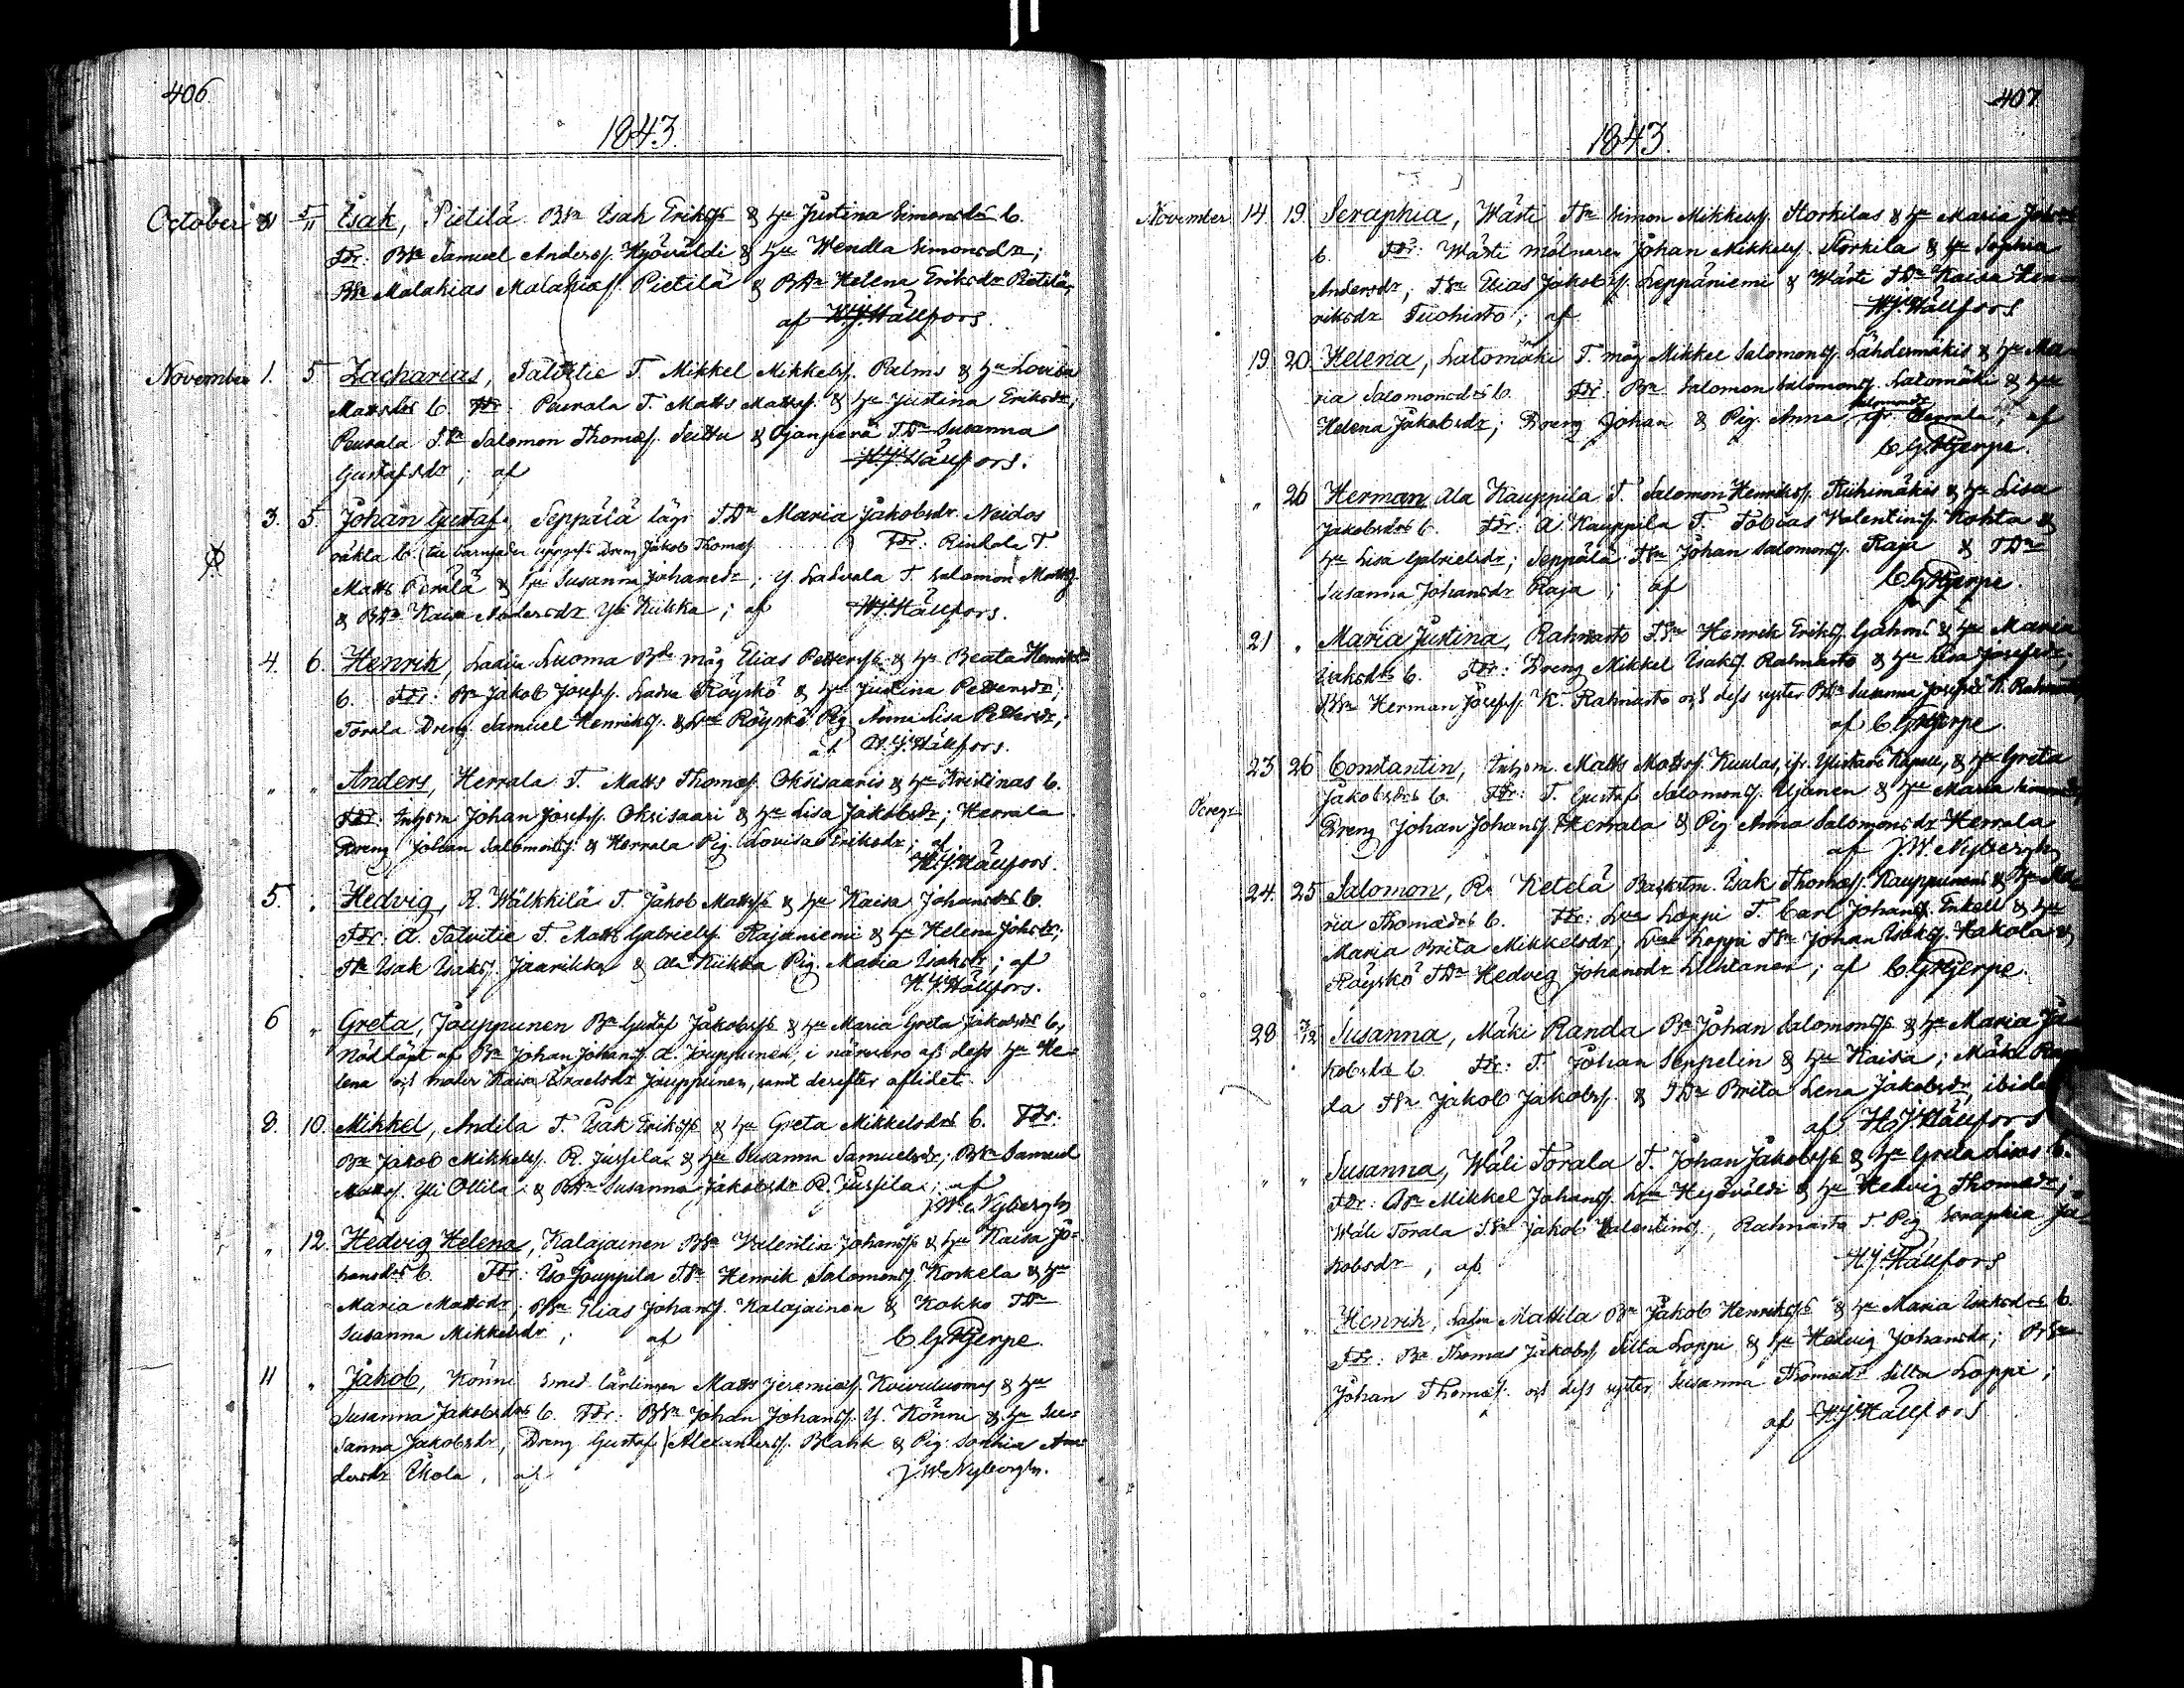 406.
1843.
October 31 5/11 Isak, Pietilä BSn Isak Eriksss & Hu Justina Simonsdrs b.
Fdr: BSn Samuel Anderss. Hyöväldi & Hu Wendla Simonsdr;
BSn Malakias Malakiass. Pietilä & BDr Helena Eriksdr Pietilä,
af H.J. Hällfors.
November 1. 5 Zacharias, Talvitie T. Mikkel Mikkelss. Palms & Hu Lovisa
Mattsdrs b. Fdr: Peurala T. Matts Mattss. & Hu Justina Eriksdr;
Peurala TSn Salomon Thomass. & Ojanperä TDr Susanna
Gustafsdr; af H.J. Hällfors.
3. 5. Johan Gustaf, Seppälä lägr TDr Maria Jakobsdr Neidos
oäkta b. (till barnfader uppgifs Dreng Jakob Thomass. Fdr: Rinkala T.
Matts Perälä & Hu Susanna Johansdr; Y. Ladvala T. Salomon Mattss.
& BDr Kaisa Andersdr Yli Kiikka; af H.J. Hällfors.
4. 6. Henrik, Ladva Luoma Bds måg Elias Petterss & Hu Beata Henriksdrs
b. Fdr: Bn Jakob Josefss. Ladva Röyskö & Hu Justina Pettersdr;
Torala Dreng Samuel Henrikss. & Röyskö Pig. Anna Lisa Pettersdr;
af H.J. Hällfors.
" " Anders, Herrala T. Matts Thomass. Oksisaaris & Hu Kristinas b.
Fdr: Inhom Johan Josefss. Oksisaari & Hu Lisa Jakobsdr; Herrala
Dreng Johan Salomonss. & Herrala Pig. Lovisa Eriksdr; af
H.J. Hällfors.
5. " Hedvig, R. Wälkkilä T. Jakob Mattss & Hu Kaisa Johansdrs b.
Fdr: A. Talvitie T. Matts Gabrielss. Rajaniemi & Hu Helena Johsdr;
TSn Isak Isakss. Jaarikka & Ala Kiikka Pig. Maria Isaksdr; af
H.J. Hällfors.
6 " Greta, Jouppunen Bn Gustaf Jakobss & Hu Maria Greta Jakobsdrs b.,
Nöddöpt af Bn Johan Johanss. A. Jouppunen, i närvaro af dess Hu He-
lena och moder Kaisa Israelsdr Jouppunen, samt derefter aflidet.
8. 10. Mikkel, Andila T. Isak Erikss & Hu Greta Mikkelsdrs b. Fdr:
Bn Jakob Mikkelss. R. Jussila & Hu Susanna Samuelsdr; BSn Samuel
Mattss. Yli Ollila & BDr Susanna Jakobsdr R. Jussila; af
J.W. Nybergh
" 12. Hedvig Helena, Kalajainen BSn Valentin Johanss & Hu Kaisa Jo-
hansdrs b. Fdr: Iso Jouppila TSn Henrik Salomonss. Korkela & Hu
Maria Mattsdr; BSn Elias Johanss. Kalajainen & Kokko TDr
Susanna Mikkelsdr; af C.G. Hjerpe.
11 " Jakob, Könni Smed lärlingen Matts Jeremiass. Koivuluomas & Hu
Susanna Jakobsdrs b. Fdr: BSn Johan Johanss. Y. Könni & Hu Su-
sanna Jakobsdr, Dreng Gustaf Alexanderss. Blank & Pig. Sophia An-
dersdr Ikola, af J.W. Nybergh.
407.
1843.
November 14. 19. Seraphia, Wästi TSn Simon Mikkelss. Storkilas & Hu Maria
b. Fdr: Wästi mölnaren Johan Mikkelss. Storkila & Hu Sophia
Andersdr; TSn Elias Jakobss. Leppäniemi & Wästi TDr Kaisa Hen-
riksdr Tuohisto; af H.J. Hällfors
19. 20. Helena, Latomäki T. måg Mikkel Salomonss. Lähdesmäkis & Hu Ma-
ria Salomonsdrs b. Fdr: Bn Salomon Salomonss. Latomäki & Hu
Helena Jakobsdr; Dreng Johan & Pig. Anna Salomonsdr fr. Herrala; af
C.G. Hjerpe.
" 26 Herman, Ala Kauppila T. Salomon Henrikss. Riihimäkis & Hu Lisa
Jakobsdrs b. Fdr: A Kauppila T. Tobias Valentinss. Kohta &
Hu Lisa Gabrielsdr; Seppälä TSn Johan Salomonss. Raja & TDr
Susanna Johansdr Raja; af C.G. Hjerpe.
21 " Maria Justina, Rahnasto TSn Henrik Erikss. Gahms & Hu Maria
Isaksdrs b. Fdr: Dreng Mikkel Isakss. Rahnasto & Hu Lisa Josefsdr;
BSn Herman Josefss. K. Rahnasto och dess syster BDr Susanna Josefsdr K. Rahnasto,
af C.G. Hjerpe.
23 26 Constantin, Inhom. Matts Mattss. Kuulas, ifr. Ylistaro Kapell, & Hu Greta
Jakobsdrs b. Fdr: T. Gustaf Salomonss. Ujanen & Hu Maria Simonsdr;
Dreng Johan Johanss. Herrala & Pig Anna Salomonsdr Herrala
af J.W. Nybergh
24. 25 Salomon, R. Ketola Backstm. Isak Thomass. Kauppinens & Hu Ma-
ria Thomasdrs b. Fdr: Loppi T. Carl Johanss. Enkell & Hu
Maria Brita Mikkelsdr, Loppi TSn Johan Isakss. Hakola &
Röyskö TDr Hedvig Johansdr Luhtanen; af C.G. Hjerpe.
28 3/12 Susanna, Mäki Randa Bn Johan Salomonss & Hu Maria Ja-
kobsdrs b. Fdr: T. Johan Seppelin & Hu Kaisa; Mäki Ran-
da TSn Jakob Jakobss. & TDr Brita Lena Jakobsdr, ibidem
af H.J. Hällfors
" " Susanna, Wäli Torala T. Johan Jakobss & Hu Greta Lisas b.
Fdr: BSn Mikkel Johanss. Hyöväldi & Hu Hedvig Thomasdr;
Wäli Torala TSn Jakob Valentinss., Rahnasto T. Pig Seraphia Ja-
kobsdr, af H.J. Hällfors
" " Henrik, Ladva Mattila Bn Jakob Henrikss & Hu Maria Isaksdrs b.
Fdr: Bn Thomas Jakobss. Silta Loppi & Hu Hedvig Johansdr; BSn
Johan Thomass. och dess syster Susanna Thomasdr Silta Loppi;
af H.J. Hällfors